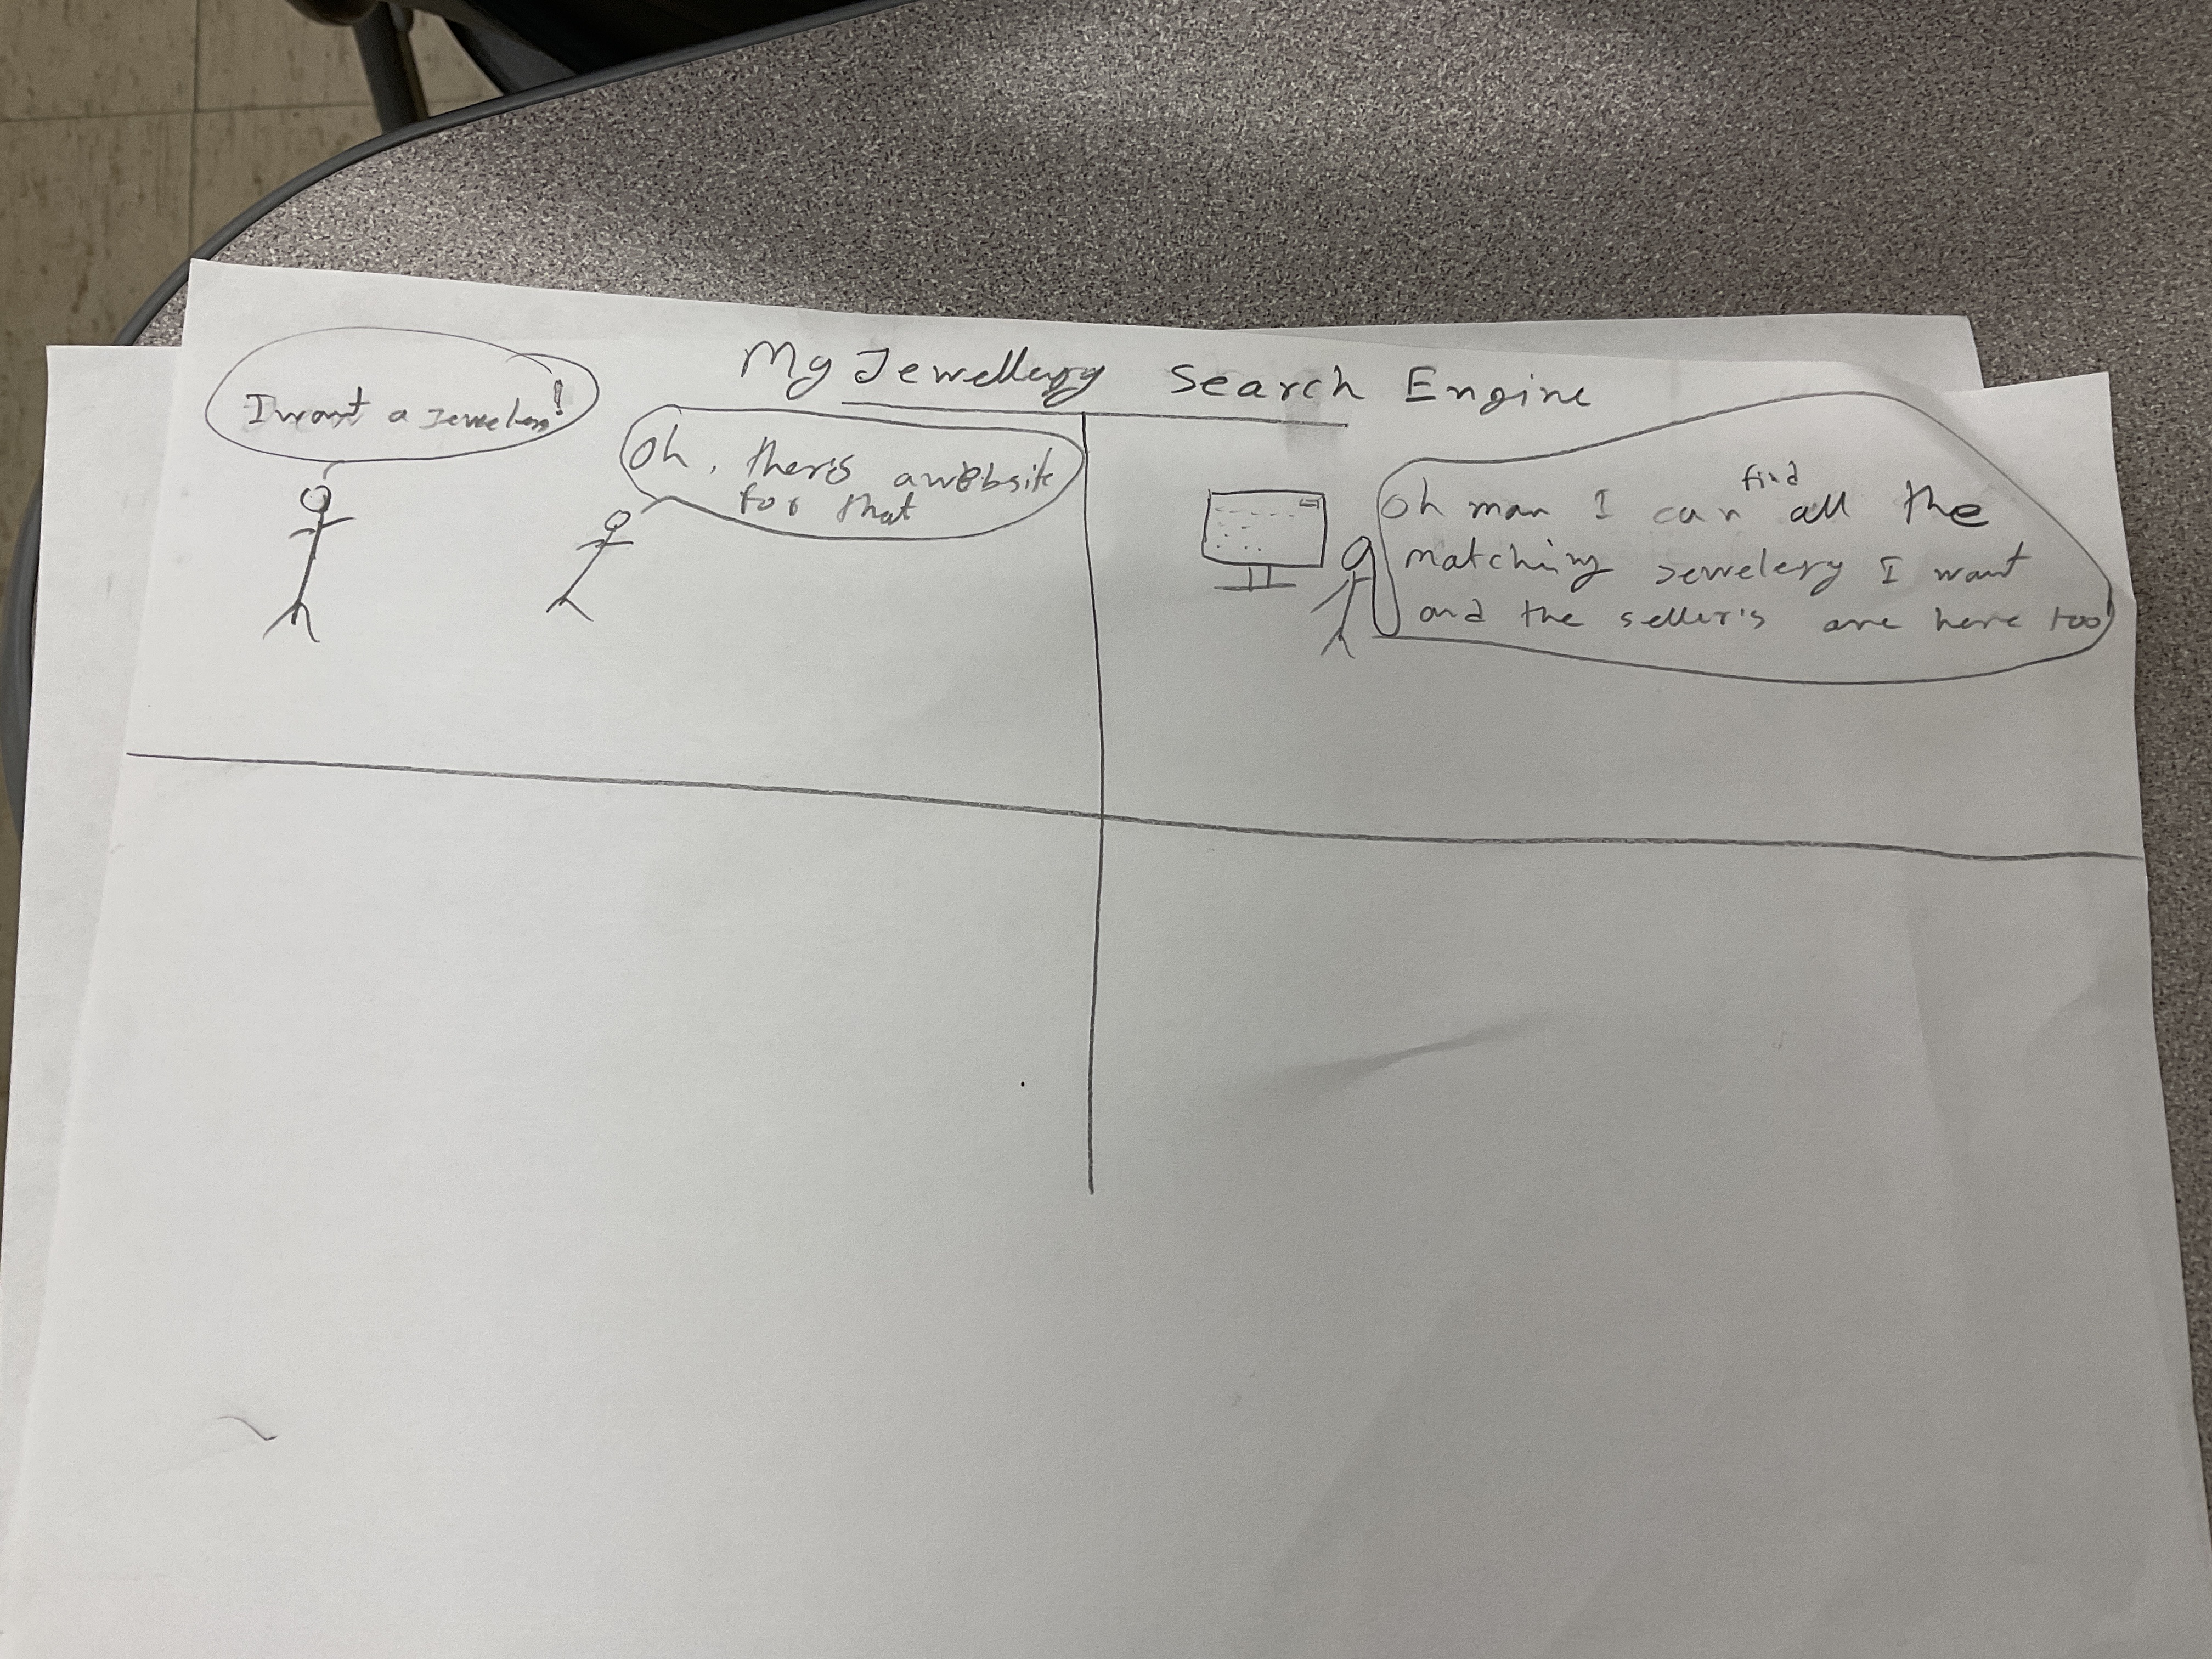 My Jewellery Search Engine
I want a Jewelery!
Oh, ther's a website
for that
Oh man I can find all the
matching Jewelery I want
and the seller's are here too!